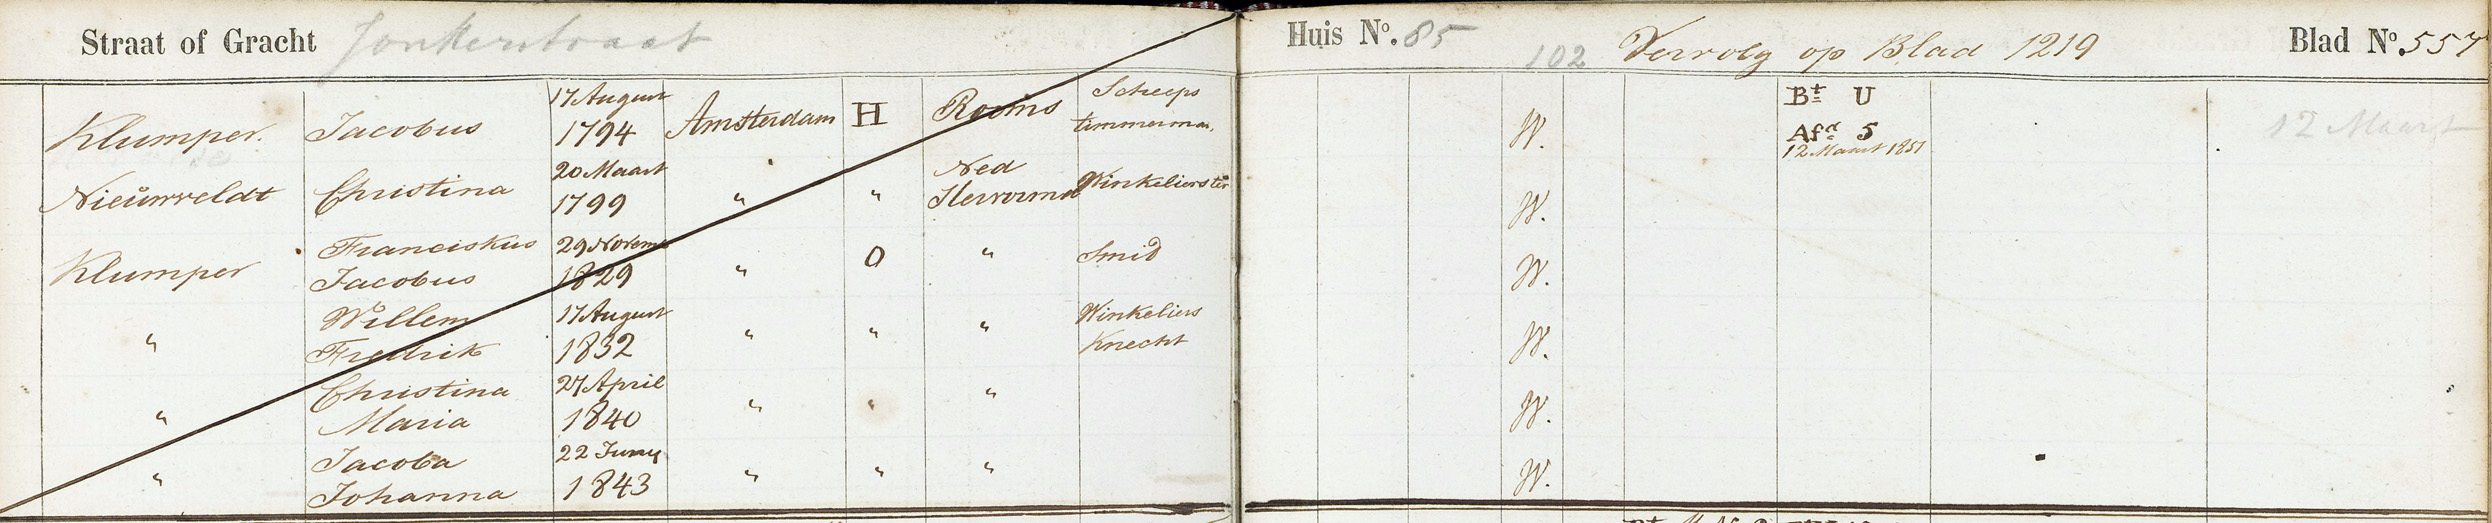 Straat of Gracht Jonkerstraat Huis No. 85 102 Vervolg op Blad 1219 Blad No. 557
Klumper. Jacobus 17 August 1794 Amsterdam H Rooms Scheeps timmerman. W. Bt U Afd 5 12 Maart 1851 12 Maart
Nieuwveldt Christina 20 Maart 1799 " " Ned Hervormd Winkelierster W.
Klumper Franciskus Jacobus 29 Novemb 1829 " O " Smid W.
" Willem Fredrik 17 August 1832 " " " Winkeliers Knecht W.
" Christina Maria 27 April 1840 " " " W.
" Jacoba Johanna 22 Juny 1843 " " " W.